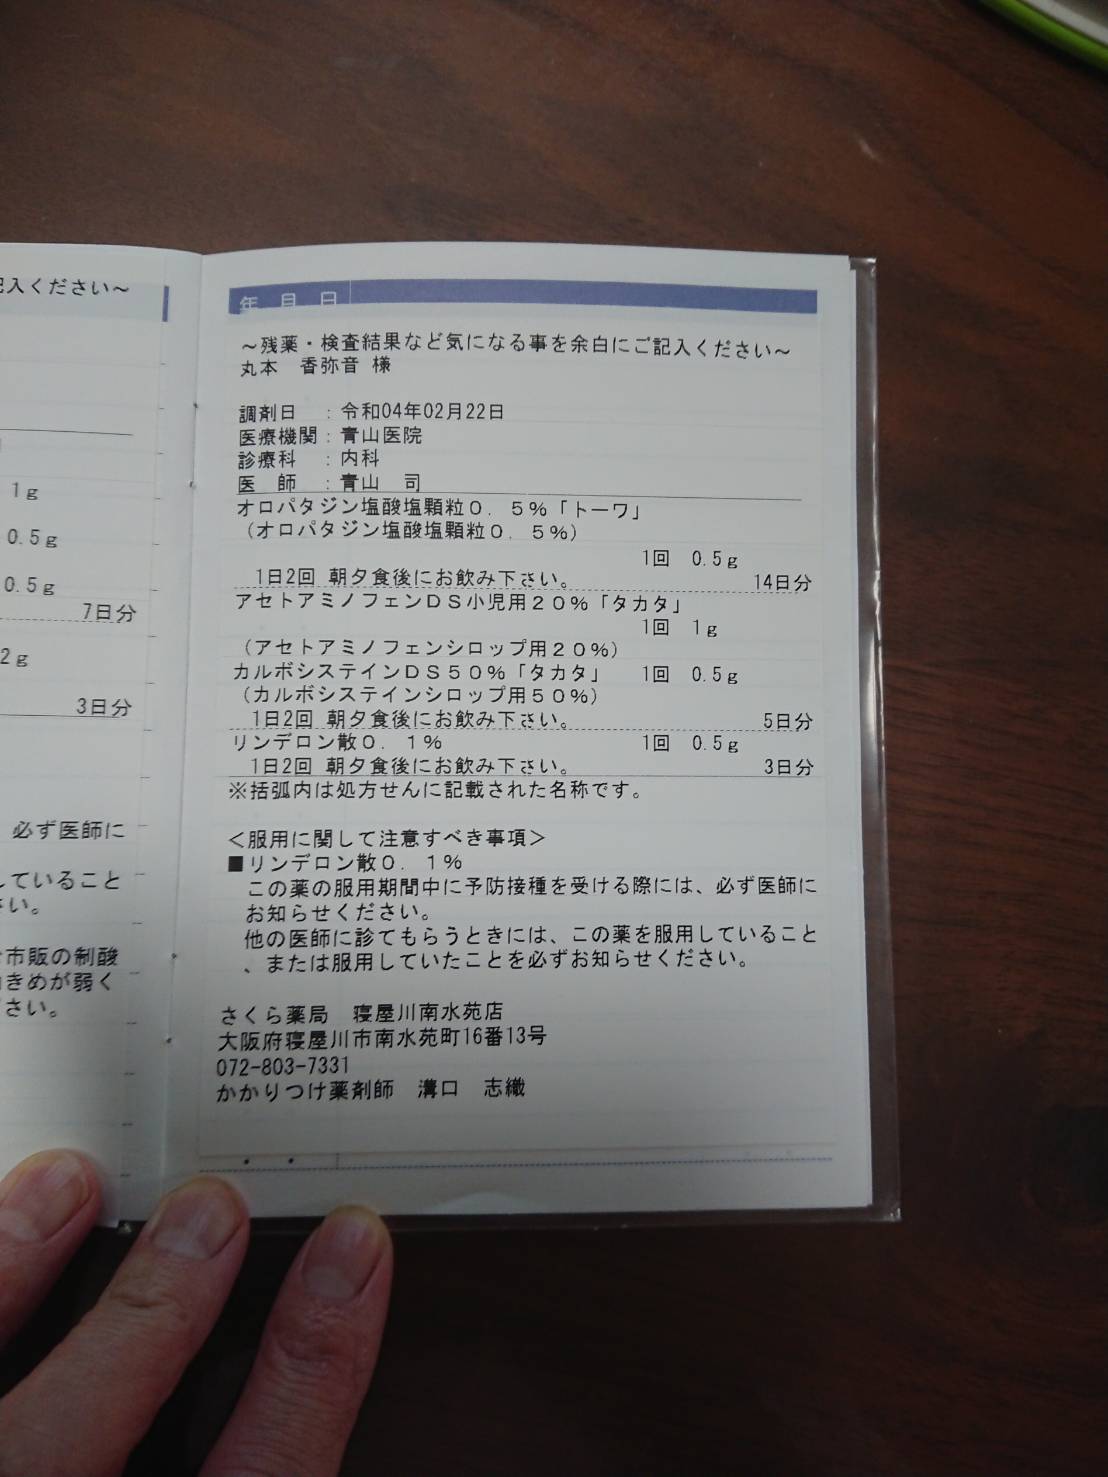 記入ください～
1g
0.5g
0.5g
7日分
2g
3日分
必ず医師に
していること
さい。
市販の制酸
きめが弱く
さい。
年 月 日
～残薬・検査結果など気になる事を余白にご記入ください～
丸本　香弥音 様
調剤日　：令和04年02月22日
医療機関：青山医院
診療科　：内科
医　師　：青山　司
オロパタジン塩酸塩顆粒０．５％「トーワ」
（オロパタジン塩酸塩顆粒０．５％）
1回　0.5g
1日2回 朝夕食後にお飲み下さい。　14日分
アセトアミノフェンＤＳ小児用２０％「タカタ」
1回　1g
（アセトアミノフェンシロップ用２０％）
カルボシステインＤＳ５０％「タカタ」　1回　0.5g
（カルボシステインシロップ用５０％）
1日2回 朝夕食後にお飲み下さい。　5日分
リンデロン散０．１％　1回　0.5g
1日2回 朝夕食後にお飲み下さい。　3日分
※括弧内は処方せんに記載された名称です。
＜服用に関して注意すべき事項＞
■リンデロン散０．１％
この薬の服用期間中に予防接種を受ける際には、必ず医師に
お知らせください。
他の医師に診てもらうときには、この薬を服用していること
、または服用していたことを必ずお知らせください。
さくら薬局　寝屋川南水苑店
大阪府寝屋川市南水苑町16番13号
072-803-7331
かかりつけ薬剤師　溝口　志織